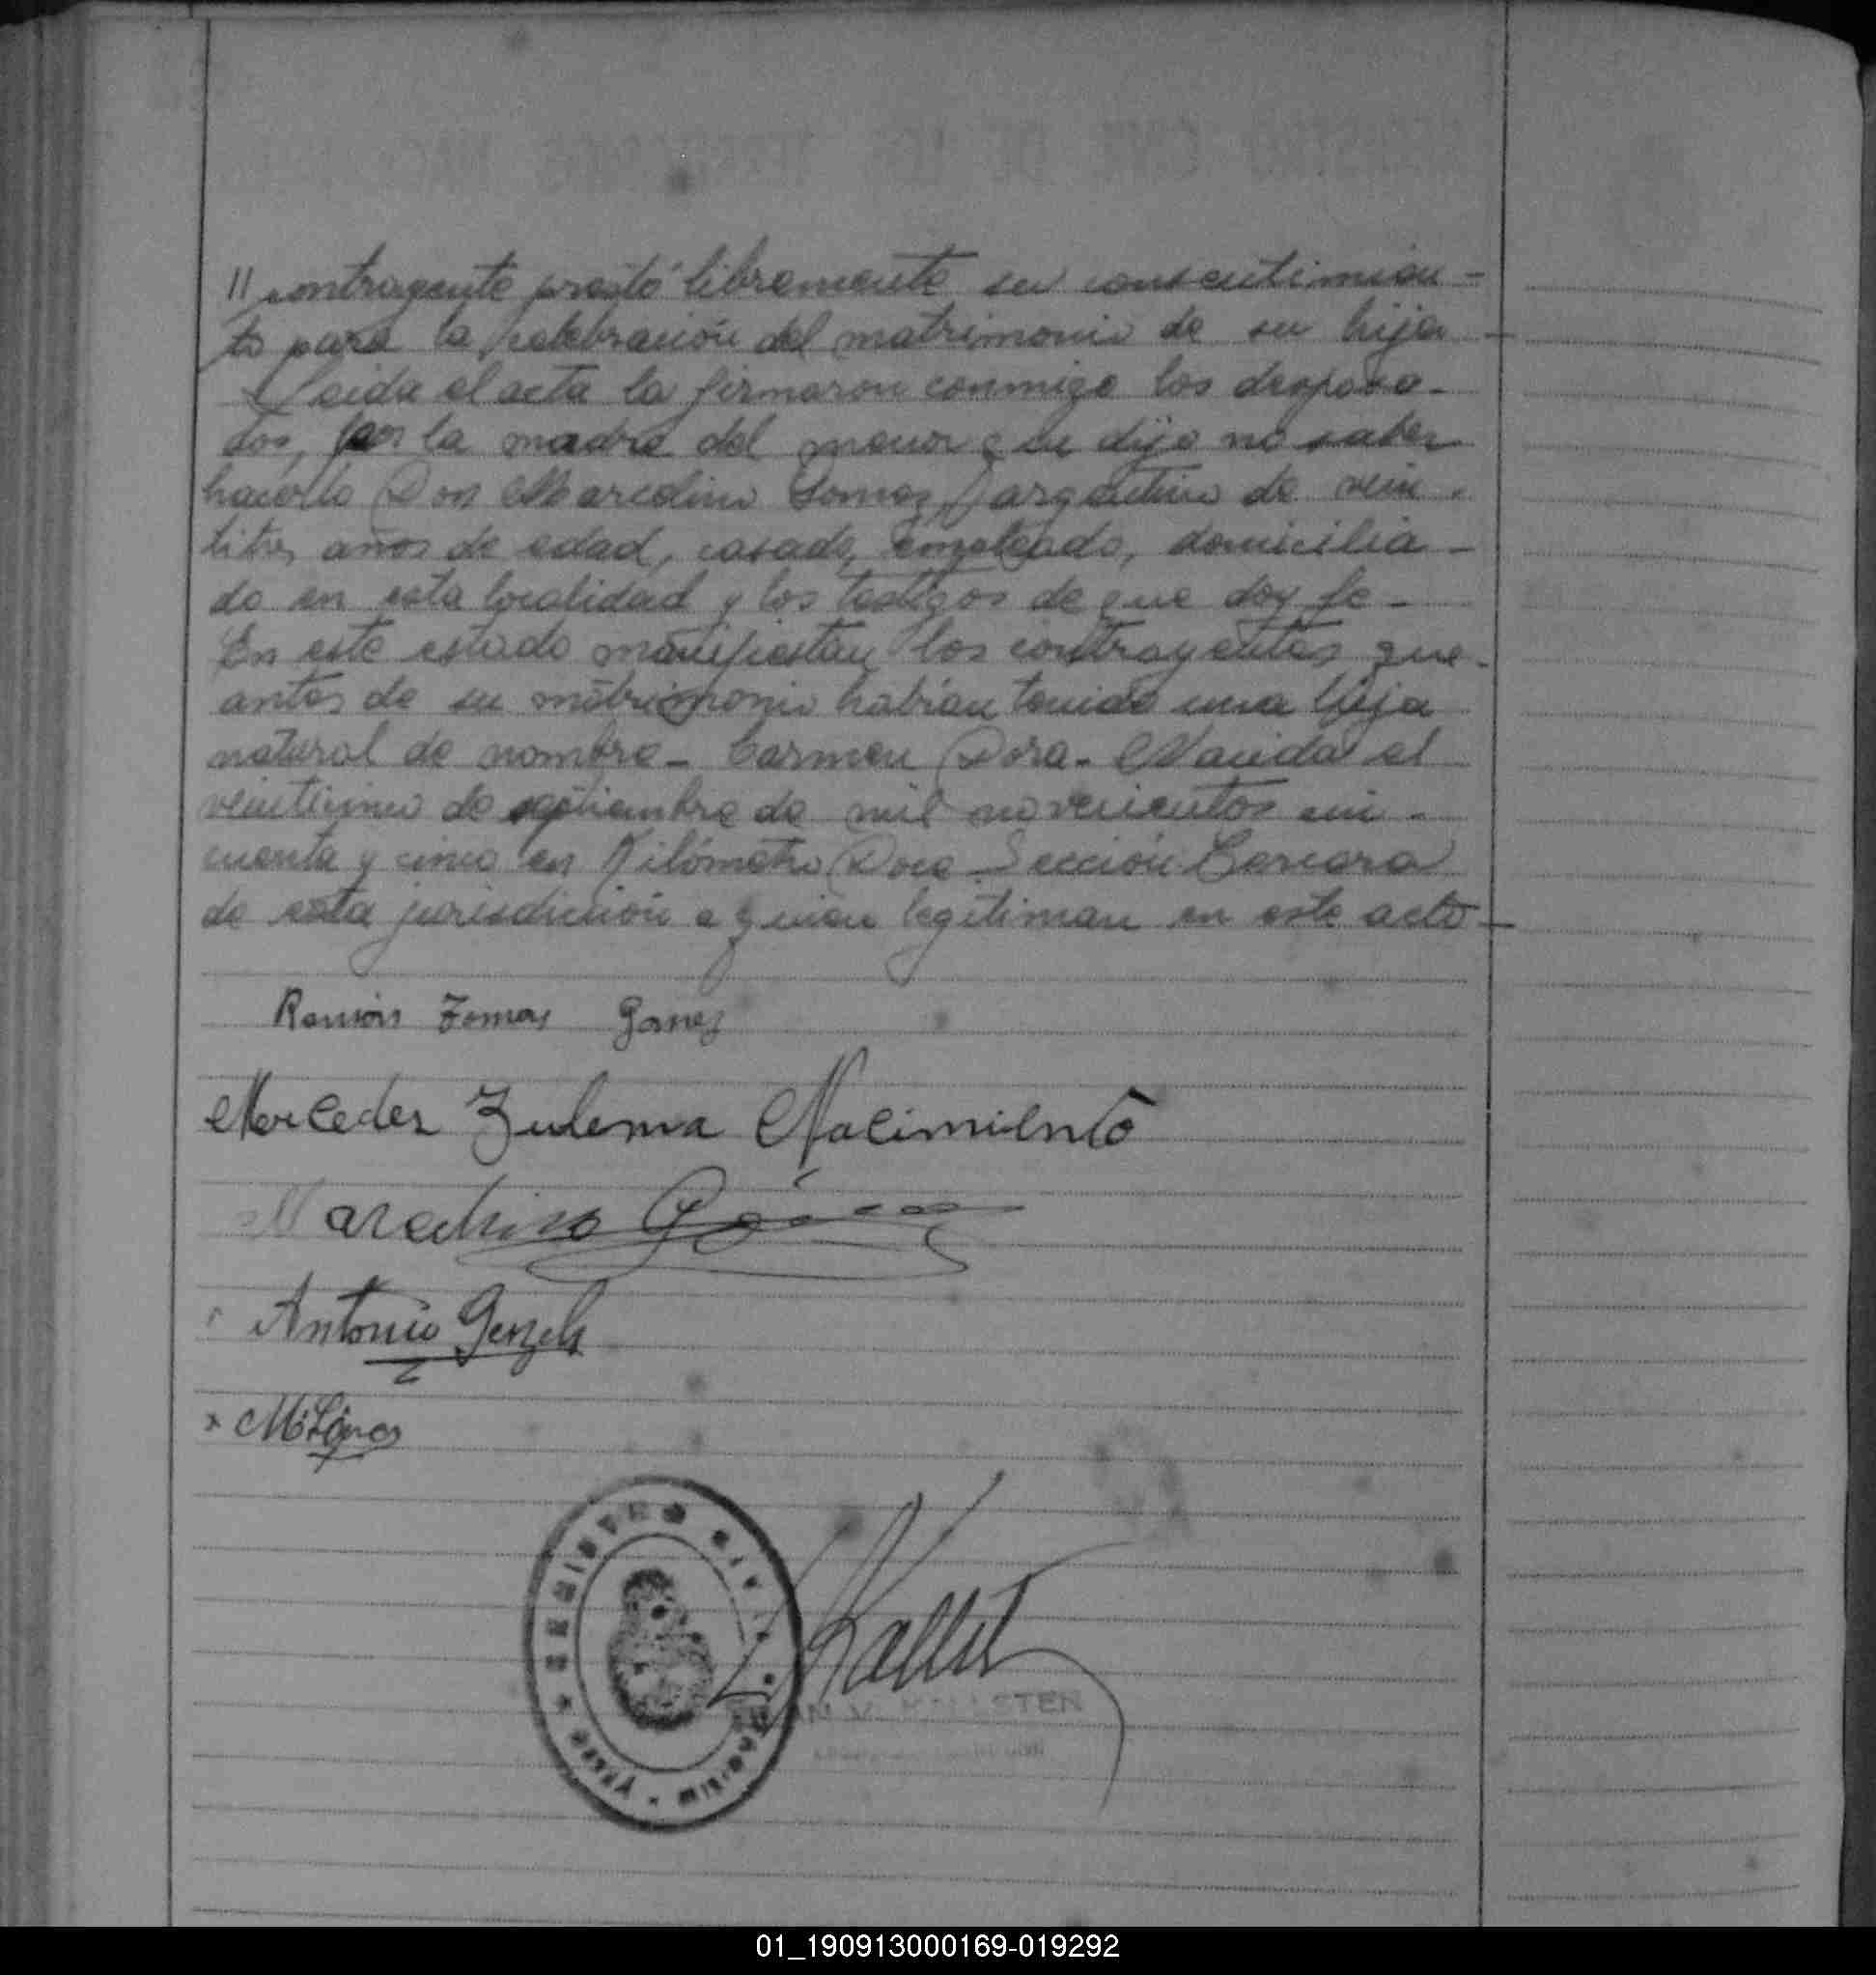 // contrayente prestó libremente su consentimien-
to para la celebración del matrimonio de su hija-
Leida el acta la firmaron conmigo los desposa-
dos, por la madre del menor que dijo no saber
hacerlo Don Marcelino Gomez, argentino de vein-
titres años de edad, casado, empleado, domicilia-
do en esta localidad y los testigos de que doy fe-
En este estado manifiestan los contrayentes que-
antes de su matrimonio habian tenido una hija
natural de nombre- Carmen Dora- Nacida el
veinticinco de septiembre de mil novecientos cin-
cuenta y cinco en Kilómetro Doce Sección Tercera
de esta jurisdicción a quien legitiman en este acto-
Ramón Tomas Gomez
Mercedes Zulema Nacimiento
Marcelino Gómez
Antonio
M. López
REGISTRO CIVIL
N V. KALLSTEN
01_190913000169-019292